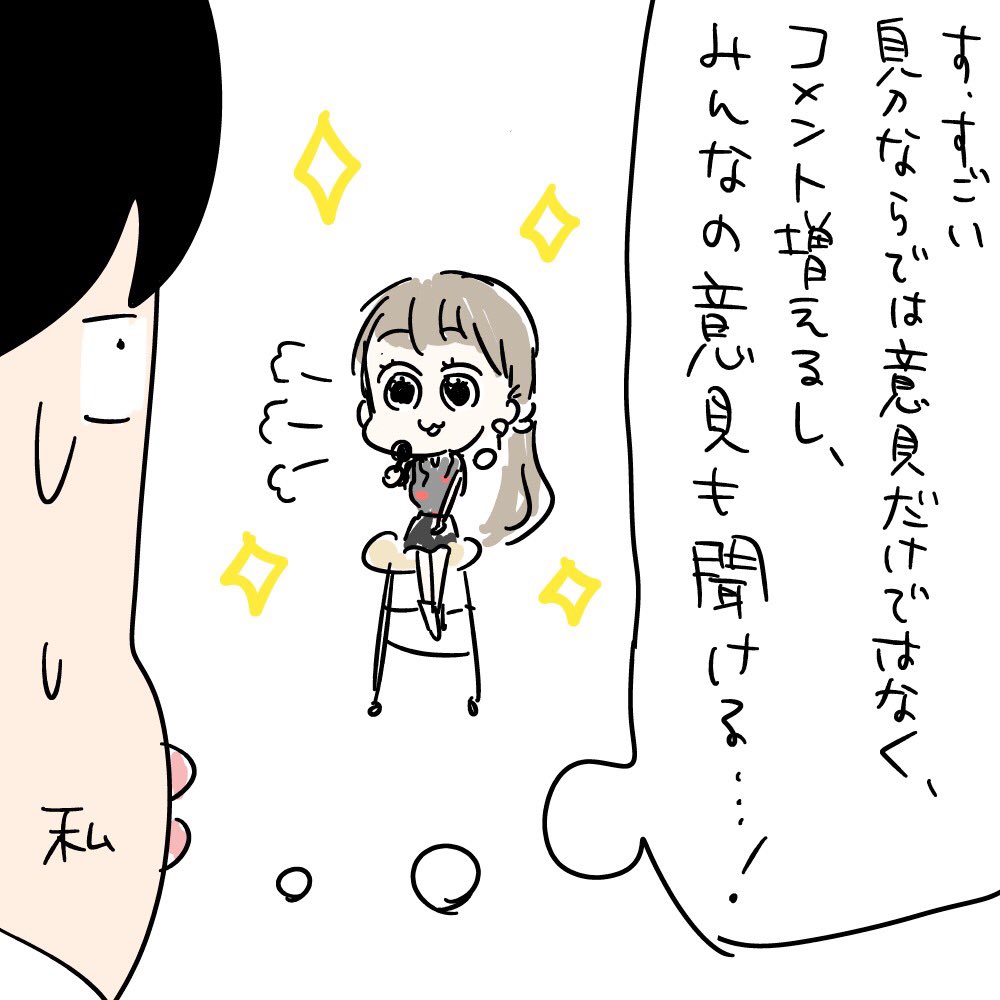 す.すごい
自分ならでは意見だけではなく、
コメント増えるし、
みんなの意見も聞ける…!
私